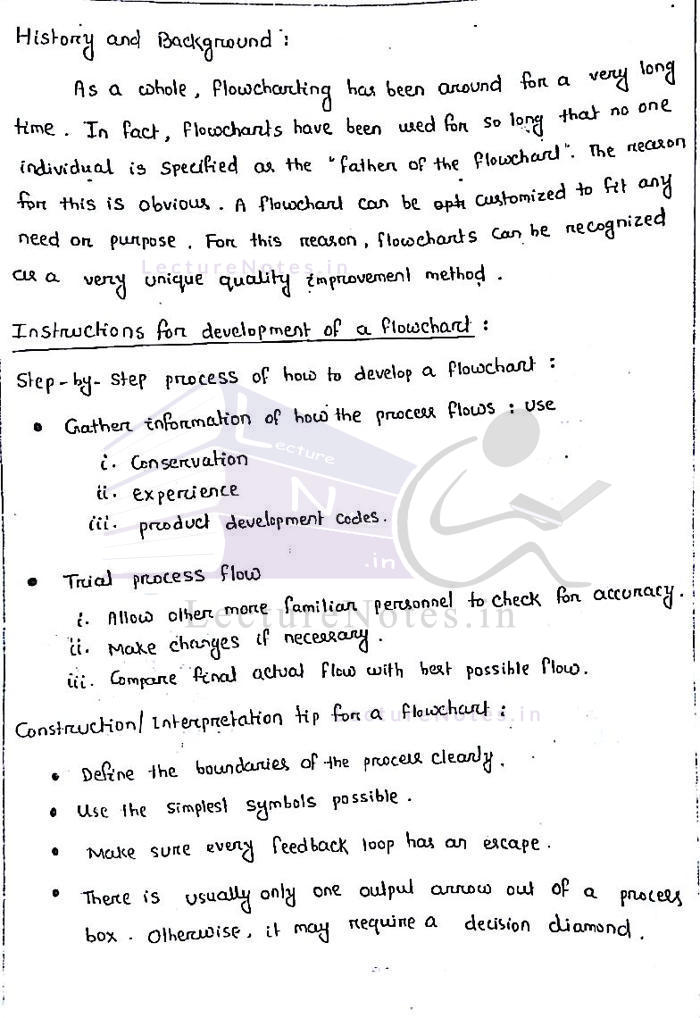 History and Background :
As a whole, flowcharting has been around for a very long
time. In fact, flowcharts have been used for so long that no one
individual is specified as the "father of the flowchart". The reason
for this is obvious. A flowchart can be customized to fit any
need or purpose. For this reason, flowcharts can be recognized
LectureNotes.in
as a very unique quality improvement method.
Instructions for development of a flowchart :
Step-by-step process of how to develop a flowchart :
• Gather information of how the process flows : use
Lecture
i. Conservation
N
ii. experience
iii. product development codes.
.in
• Trial process flow
i. Allow other more familiar personnel to check for accuracy.
LectureNotes.in
ii. Make changes if necessary.
iii. Compare final actual flow with best possible flow.
Construction/Interpretation tip for a flowchart :
LectureNotes.in
• Define the boundaries of the process clearly.
• Use the simplest symbols possible.
• Make sure every feedback loop has an escape.
• There is usually only one output arrow out of a process
box. Otherwise, it may require a decision diamond.